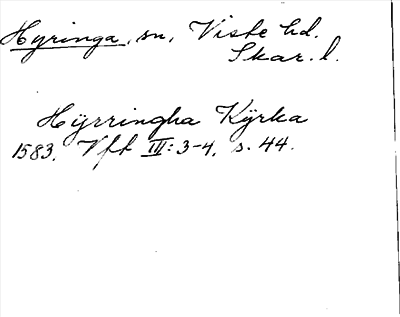 Hyringa, sn, Viste hd.
Skar. l.
Hÿrringha Kÿrka
1583. Vft III: 3-4, s. 44.